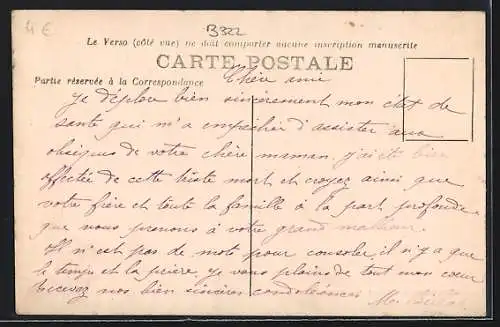 4 €
B322
Le Verso (côté vue) ne doit comporter aucune inscription manuscrite
CARTE POSTALE
Partie réservée à la Correspondance
Chère amie
Je déplore bien sincèrement mon état de
santé qui m'a empêcher d'assister aux
obsèques de votre chère maman. j'ai été bien
affectée de cette triste mort et croyez ainsi que
votre frère et toute la famille à la part profonde
que nous prenons à votre grand malheur.
Il n'est pas de mots pour consoler, il n'y a que
le temps et la prière je vous plains de tout mon cœur
Recevez nos bien sincères condoléances